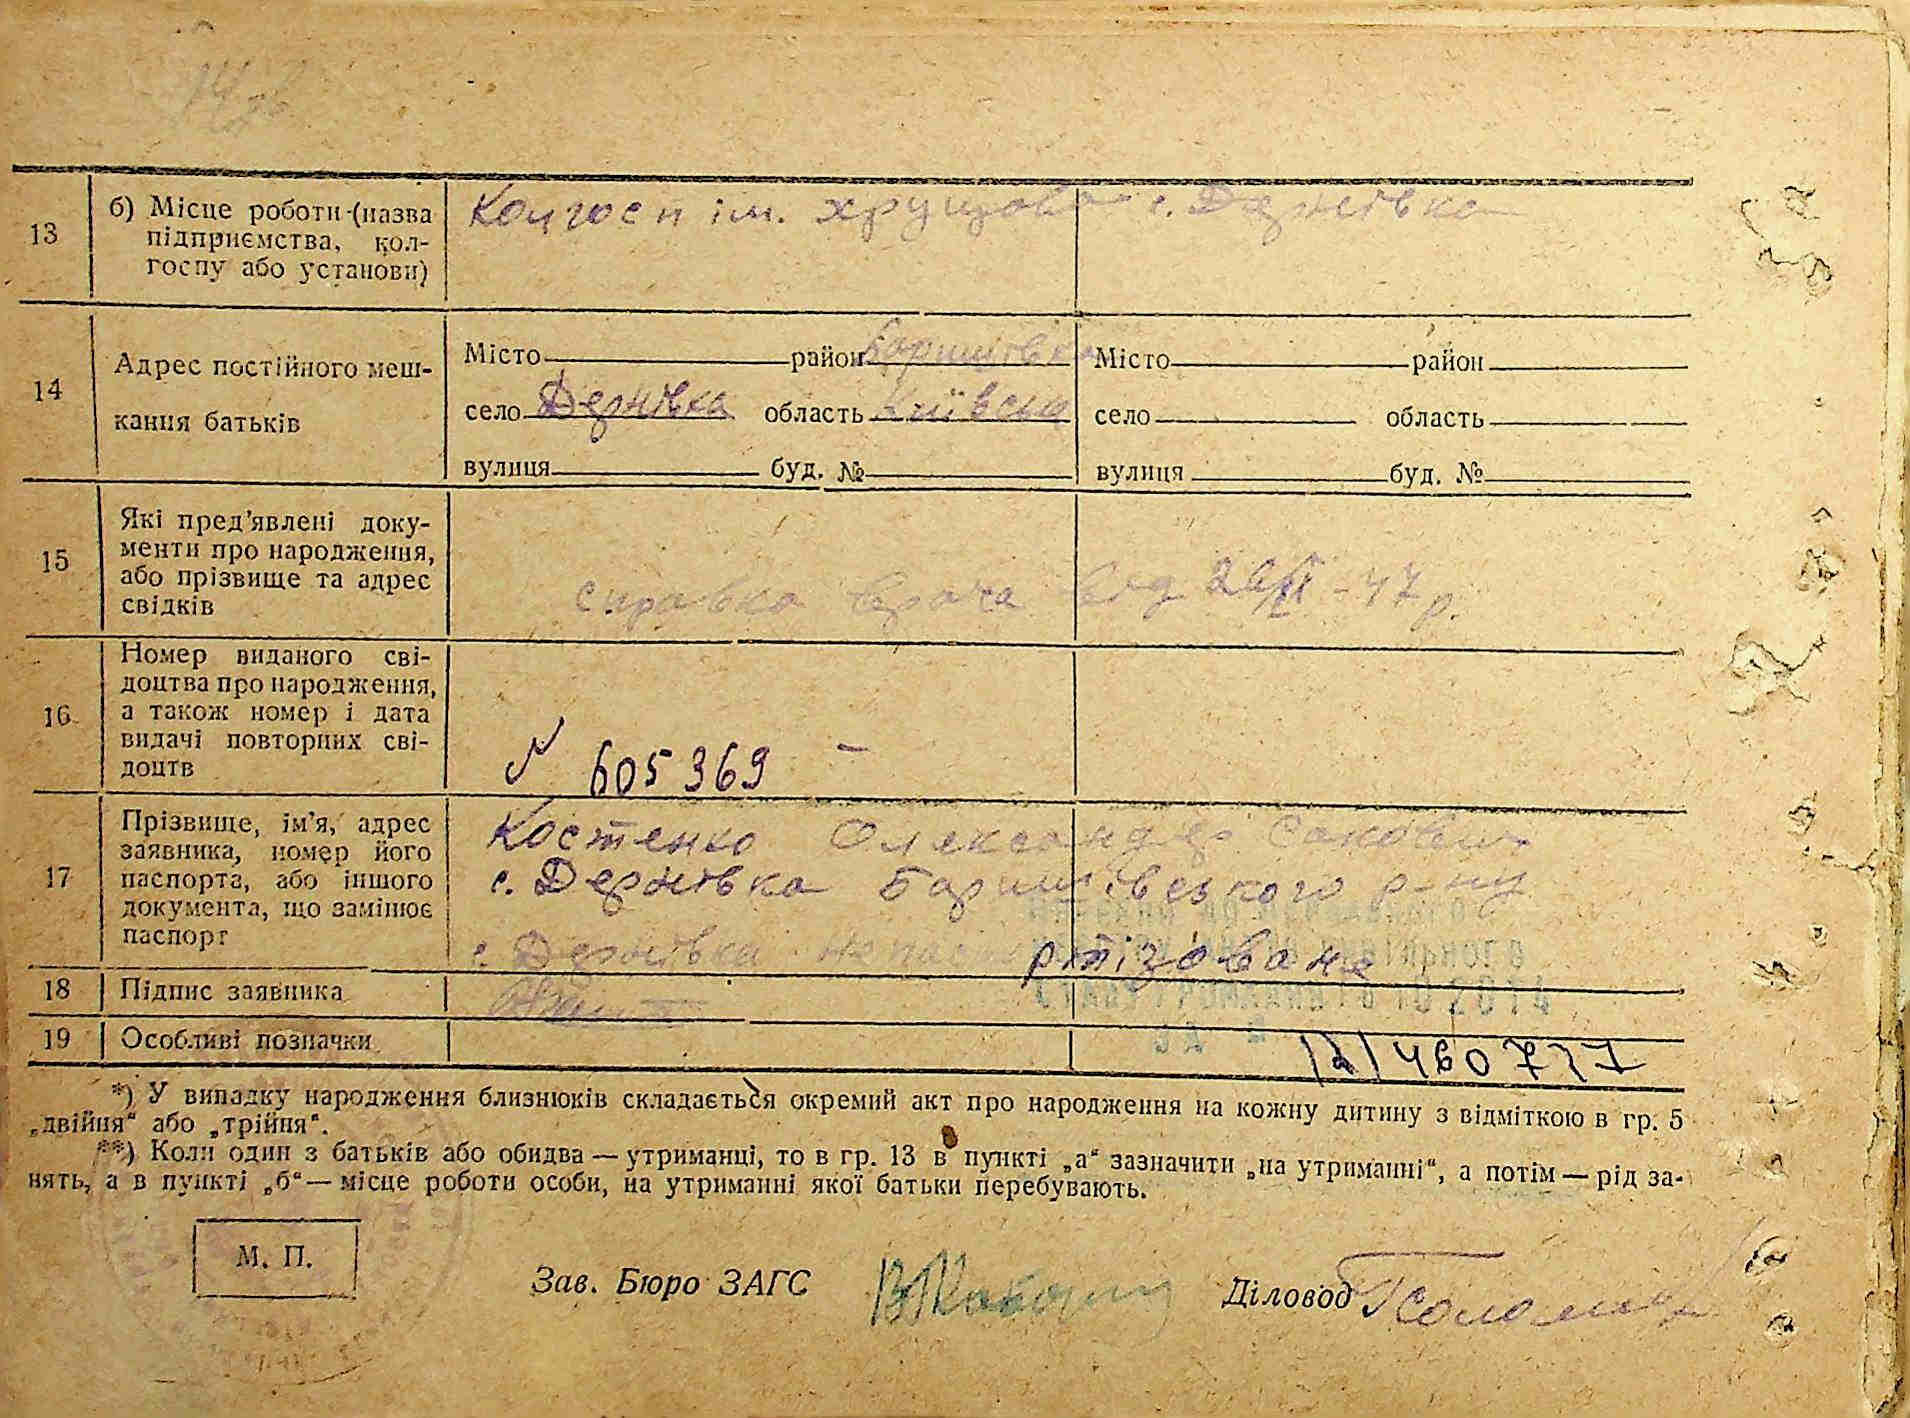 13
б) Місце роботи (назва
підприємства, кол-
госпу або установи)
Колгосп ім. Хрущова с. Дернівка
14
Адрес постійного меш-
кання батьків
Місто район Баришівка
село Дернівка область Київськ
вулиця буд. №
Місто район
село область
вулиця буд. №
15
Які пред’явлені доку-
менти про народження,
або прізвище та адрес
свідків
справка врача від 26/ -47 р.
16
Номер виданого сві-
доцтва про народження,
а також номер і дата
видачі повторних сві-
доцтв
№ 605369 –
17
Прізвище, ім’я, адрес
заявника, номер його
паспорта, або іншого
документа, що замінює
паспорт
Костенко Олександр
с. Дернівка Баришівського р-ну
с. Дернівка непаспортізоване
18
Підпис заявника
19
Особливі позначки
*) У випадку народження близнюків складається окремий акт про народження на кожну дитину з відміткою в гр. 5
„двійня“ або „трійня“.
**) Коли один з батьків або обидва — утриманці, то в гр. 13 в пункті „а“ зазначити „на утриманні“, а потім — рід за-
нять, а в пункті „б“ — місце роботи особи, на утриманні якої батьки перебувають.
М. П.
Зав. Бюро ЗАГС
Діловод